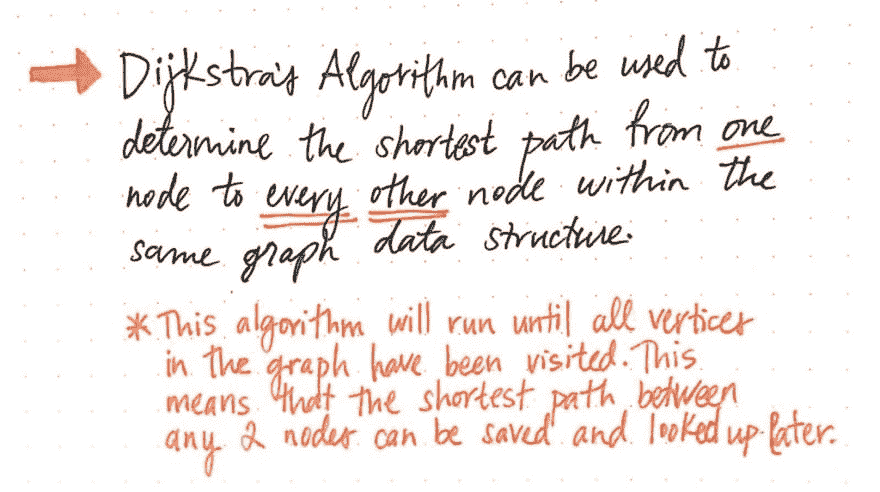 Dijkstra's Algorithm can be used to
determine the shortest path from one
node to every other node within the
same graph data structure.
*This algorithm will run until all vertices
in the graph have been visited. This
means that the shortest path between
any 2 nodes can be saved and looked up later.